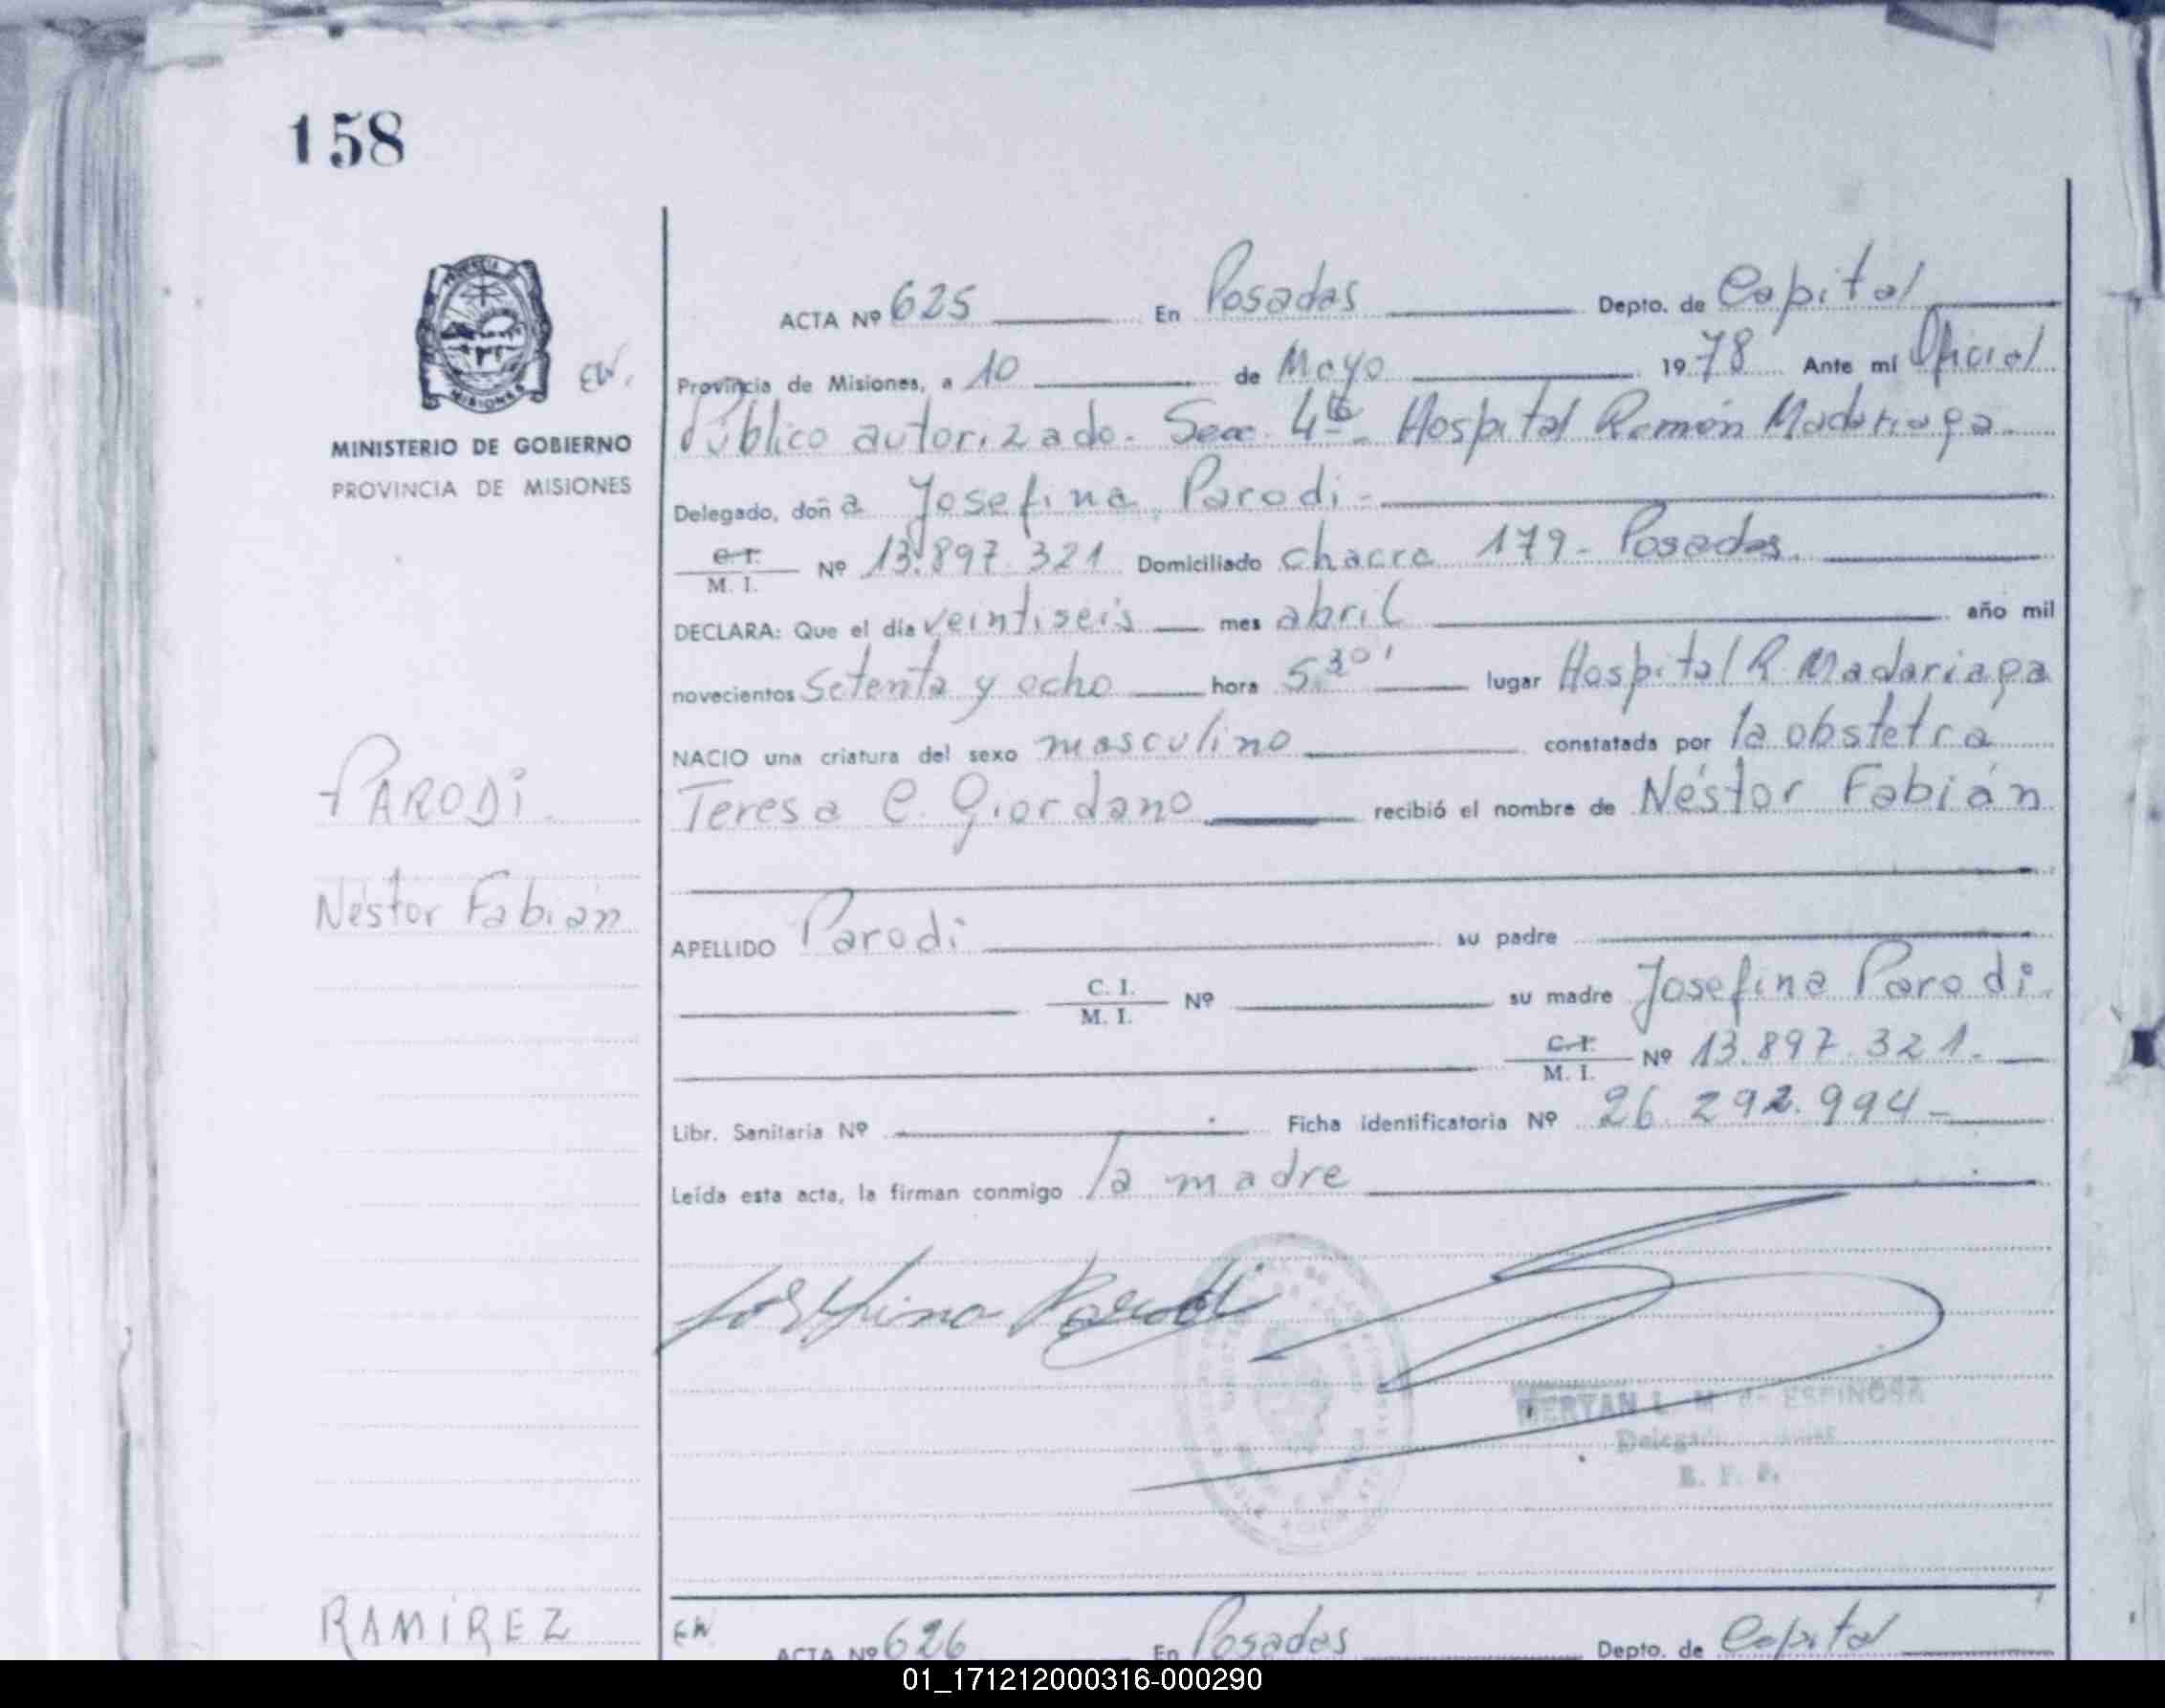 158
EW.
MINISTERIO DE GOBIERNO
PROVINCIA DE MISIONES
PARODi.
Néstor Fabián
RAMÍREZ
ACTA Nº 625 En Posadas Depto. de Capital
Provincia de Misiones, a 10 de Mayo 1978 Ante mi Oficial
Público autorizado. Secc. 4ta. Hospital Ramón Madariaga.
Delegado, doña Josefina Parodi.
C. I.
M. I. Nº 13.897.321 Domiciliado chacra 179. Posadas.
DECLARA: Que el día veintiseis mes abril año mil
novecientos Setenta y ocho hora 5.30' lugar Hospital R. Madariaga
NACIO una criatura del sexo masculino constatada por la obstetra
Teresa C. Giordano recibió el nombre de Néstor Fabián
APELLIDO Parodi su padre
C. I.
M. I. Nº su madre Josefina Parodi.
C. I.
M. I. Nº 13.897.321.
Libr. Sanitaria Nº Ficha identificatoria Nº 26.292.994-
Leída esta acta, la firman conmigo la madre
Josefina Parodi
ESPINOSA
EW
ACTA Nº 626 En Posadas Depto. de Capital
01_171212000316-000290